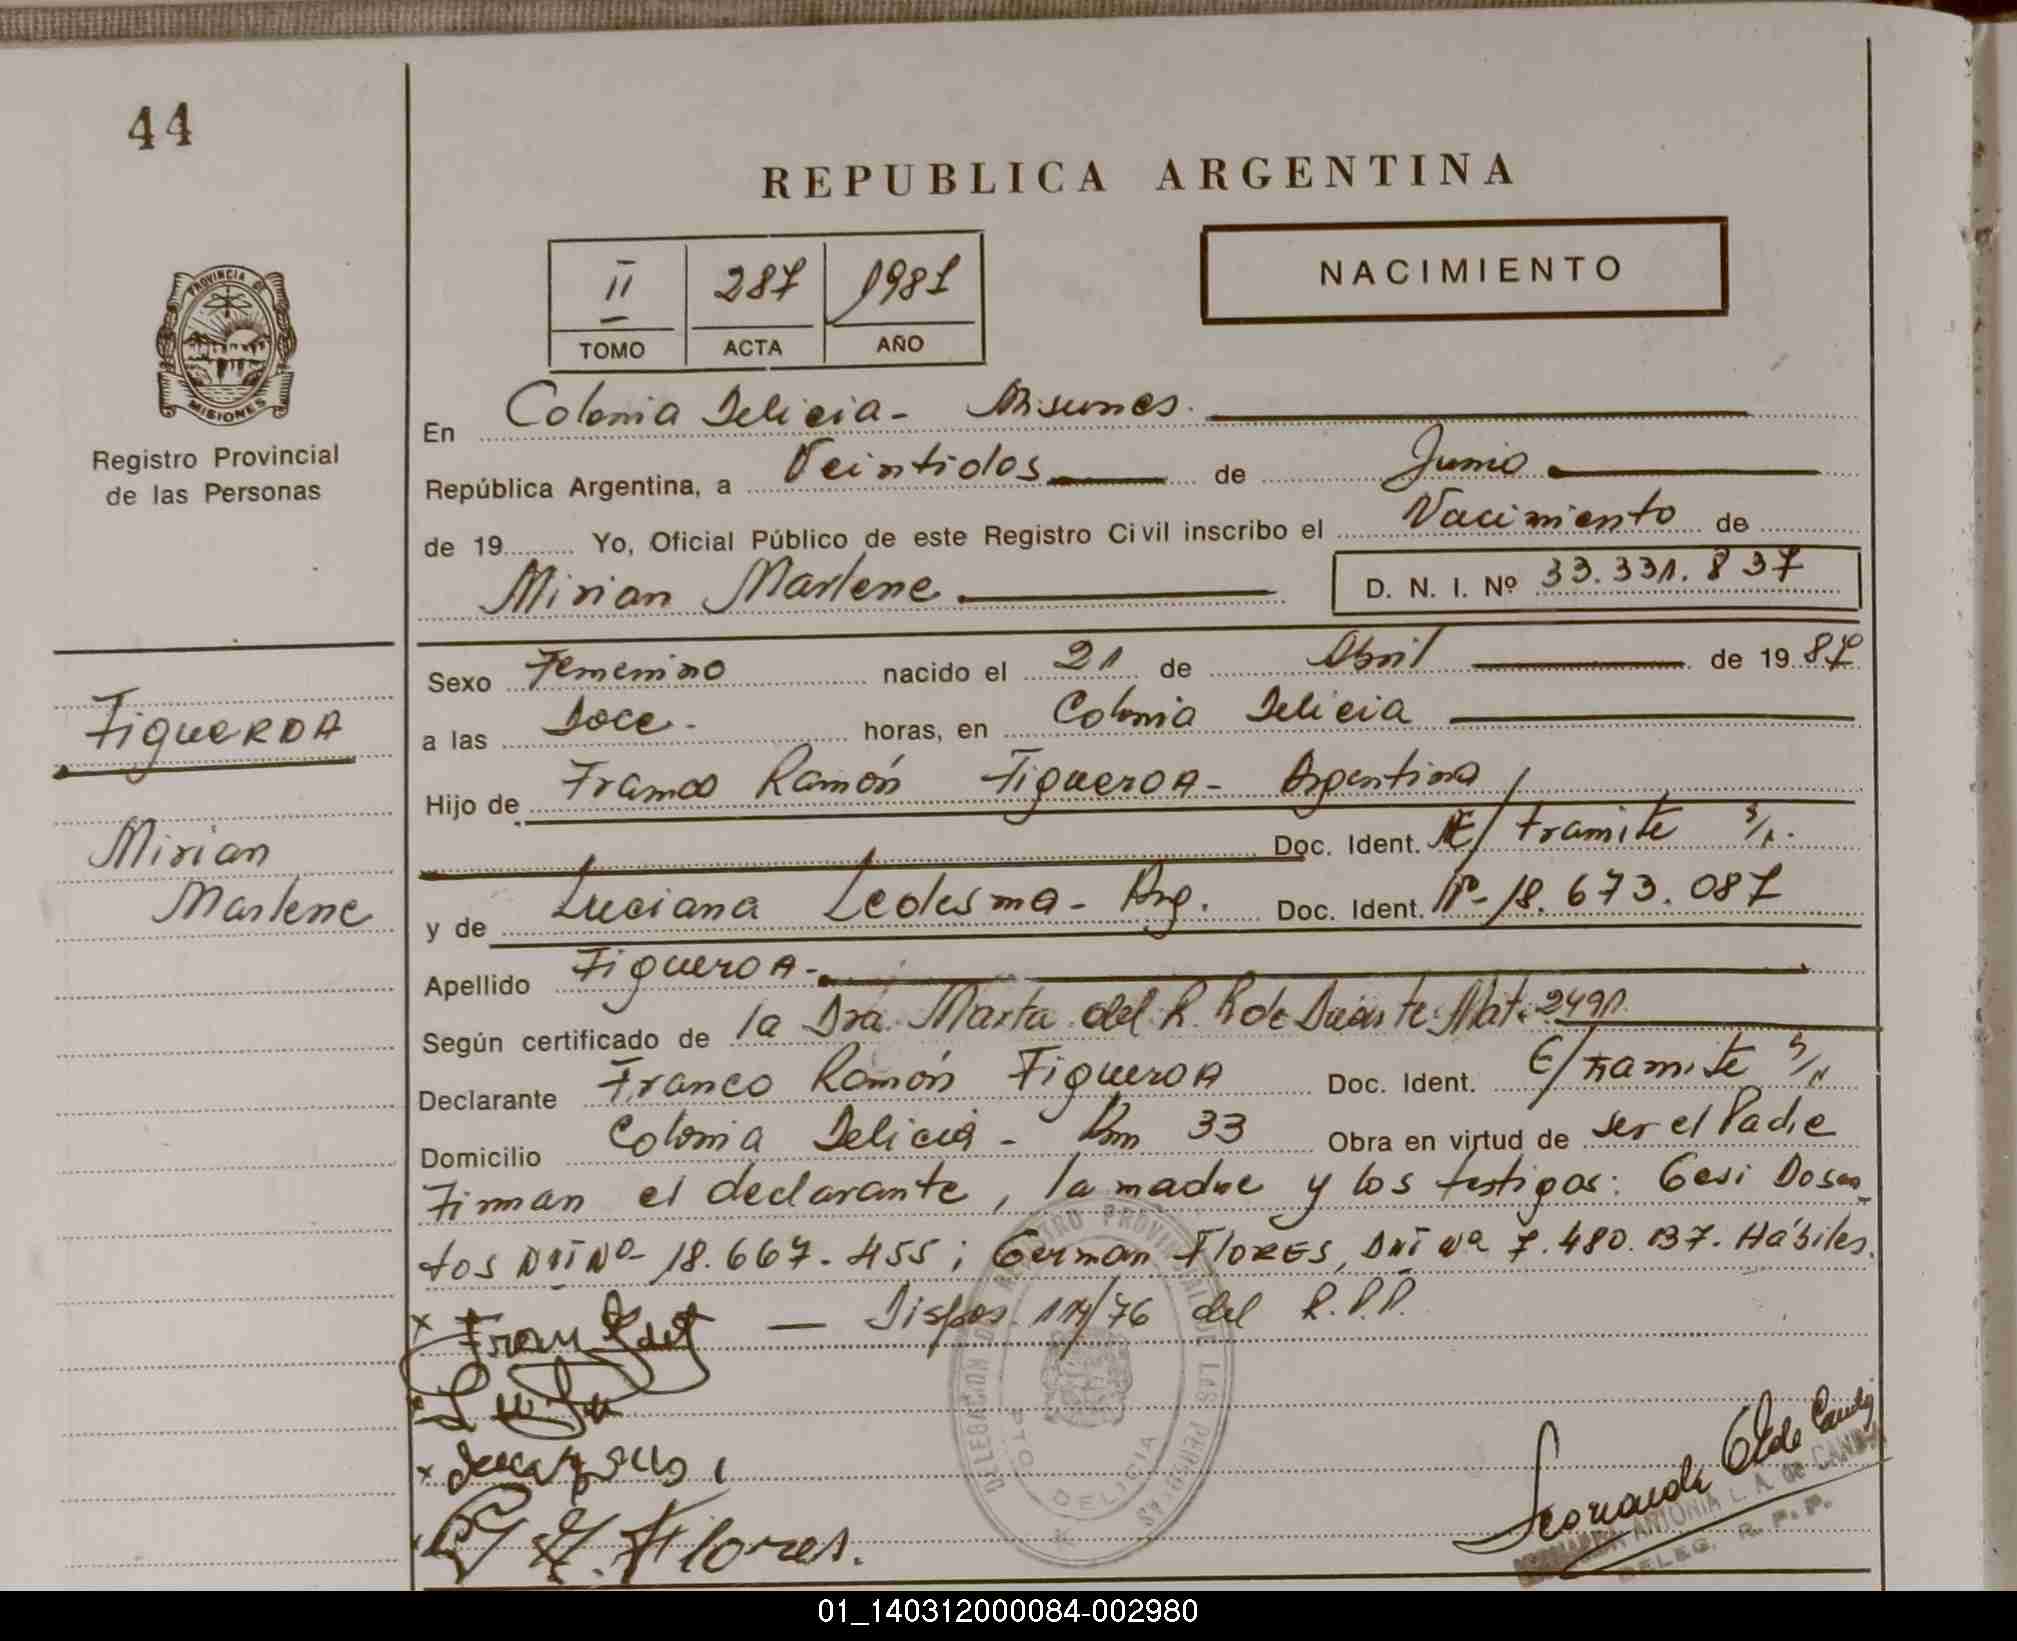 44
REPUBLICA ARGENTINA
II 287 1987
TOMO ACTA AÑO
NACIMIENTO
PROVINCIA DE
MISIONES
Registro Provincial
de las Personas
En Colonia Delicia - Misiones.
República Argentina, a Veintidos de Junio
de 19 Yo, Oficial Público de este Registro Civil inscribo el Nacimiento de
Mirian Marlene D. N. I. Nº 33.331.837
Sexo Femenino nacido el 21 de Abril de 19 87
a las Doce. horas, en Colonia Delicia
Hijo de Franco Ramón Figueroa - Argentina
Doc. Ident. E/ tramite S/N.
y de Luciana Ledesma - Arg. Doc. Ident. Nº 18.673.087
Apellido Figueroa -
Según certificado de la Dra. Marta del R. R de Duarte Mat. 2491
Declarante Franco Ramón Figueroa Doc. Ident. E/ tramite S/N
Domicilio Colonia Delicia - Km 33 Obra en virtud de ser el Padre
Firman el declarante, la madre y los testigos:
tos DNI Nº 18.667.455; German FLORES, DNI Nº 7.480.137. Hábiles.
— Dispos. 114/76 del R.P.P.
FIGUEROA
Mirian
Marlene
DELEGACION DEL REGISTRO PROVINCIAL DE LAS PERSONAS
PTO. DELICIA
Flores.
ANTONIA L. A. de CANDIA
DELEG. R. P. P.
01_140312000084-002980